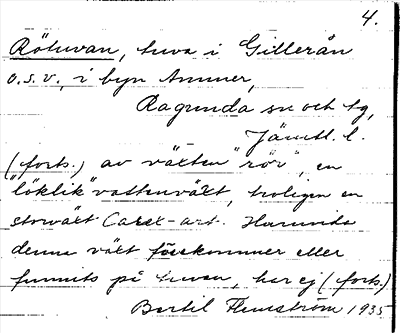 4.
Rötuvan, tuva i Gillerån
o.s.v., i byn Ammer,
Ragunda sn och tg,
Jämtl. l.
(forts.) av växten "rör", en
"löklik" vattenväxt, troligen en
storväxt Carex-art. Huruvida
denna växt förekommer eller
funnits på tuvan, har ej (forts.)
Bertil Flemström 1935